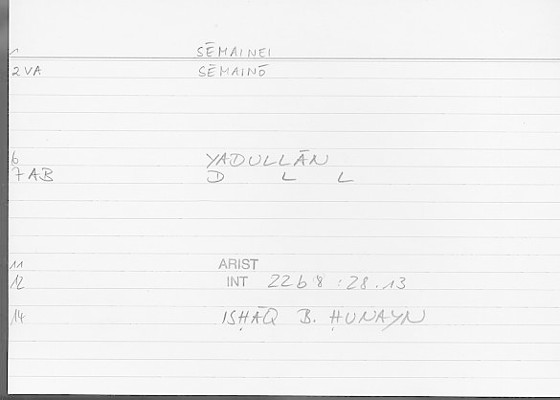 1 SĒMAINEI
2 VA SĒMAINŌ
6 YADULLĀN
7 AB D L L
11 ARIST
12 INT 22b8 : 28.13
14 ISḤĀQ B. ḤUNAYN